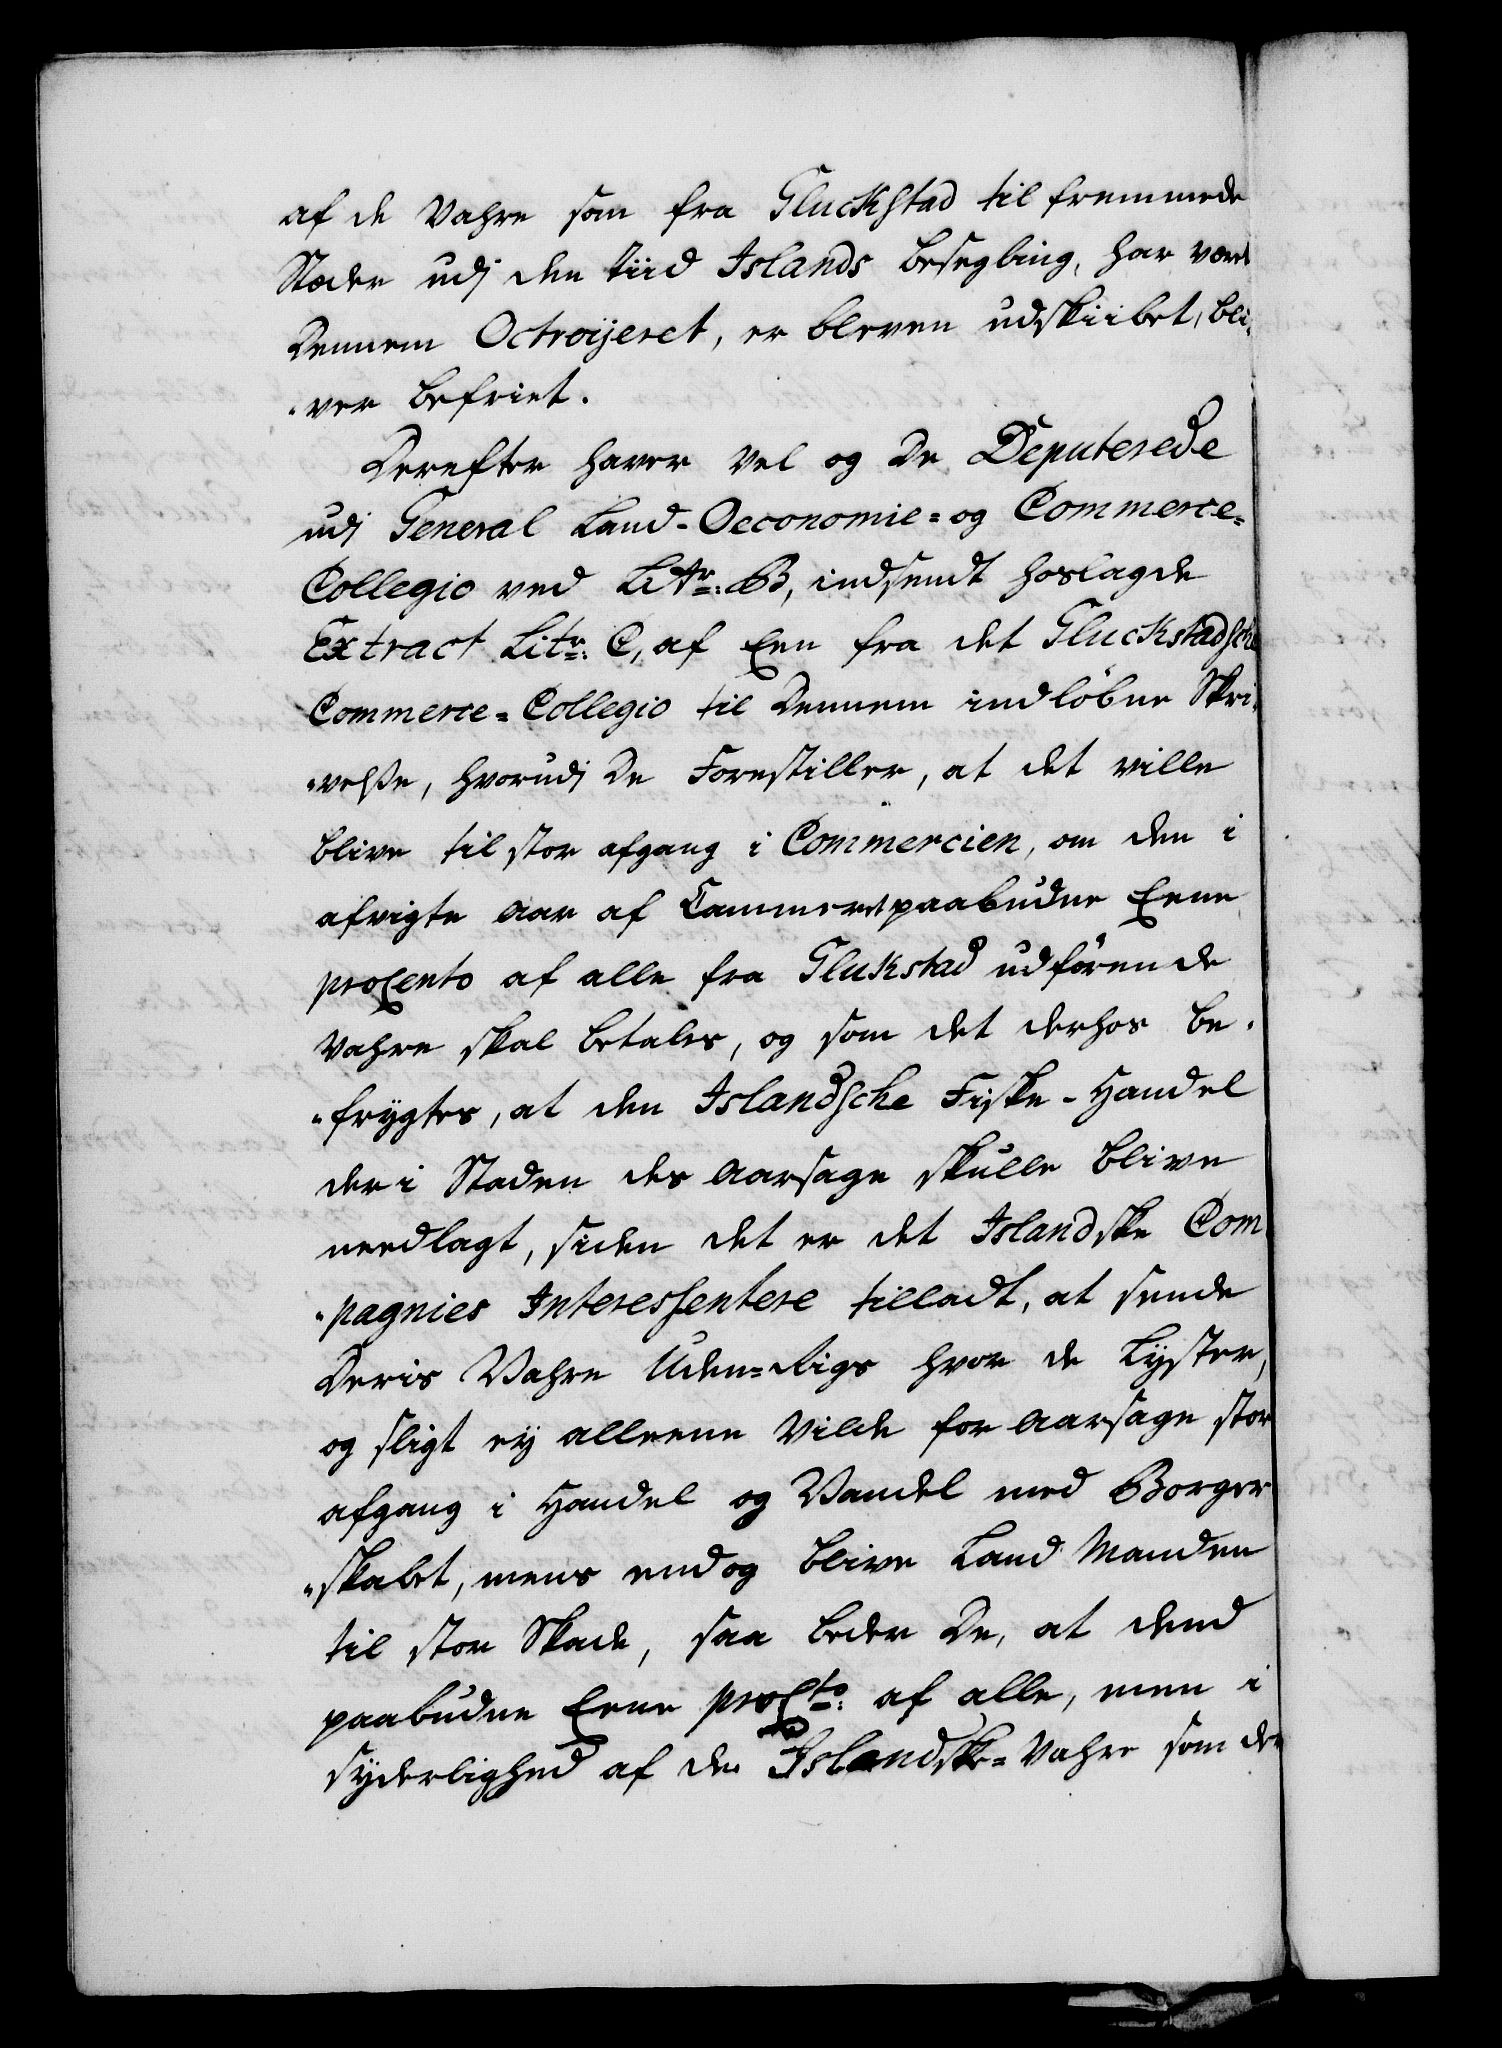 af de Vahre som fra Gluckstad til fremmede
Stæder udj den Tiid Islands Besegling, har været
Dennem Octroijeret, er bleven udskiibet, bli,
"ver befriet.
Derefter haver Vel og De Deputerede
udj General Land-Oeconomie=og Commerce=
Collegio ved Litr: B, indsendt hoslagde
Extract Litr: C, af Een fra det Gluckstadsche
Commerce=Collegio til Dennem indløbne Skri,
"velße, hvorudj De Forestiller, at det ville
blive til stor afgang i Commercien, om den i
afvigte Aar af Cammeret paabudne Eene
proCento af alle fra Glukstad udförende
Vahre skal betales, og som det derhos be,
"frygtes, at den Islandsche Fiske-Handel
der i Staden des Aarsage skulle blive
needlagt, siden det er det Islandske Com,
"pagnies Interessentere tilladt, at sende
Deris Vahre Uden=Rigs hvor de Lyster,
og sligt ey alleene Vilde for Aarsage stor
afgang i Handel og Vandel med Borger
"skabet, mens endog blive Land Manden
til stor Skade, saa beder De, at dend
paabudne Eene proCto: af alle, men i
syderlighed af de Islandske=Vahre som der